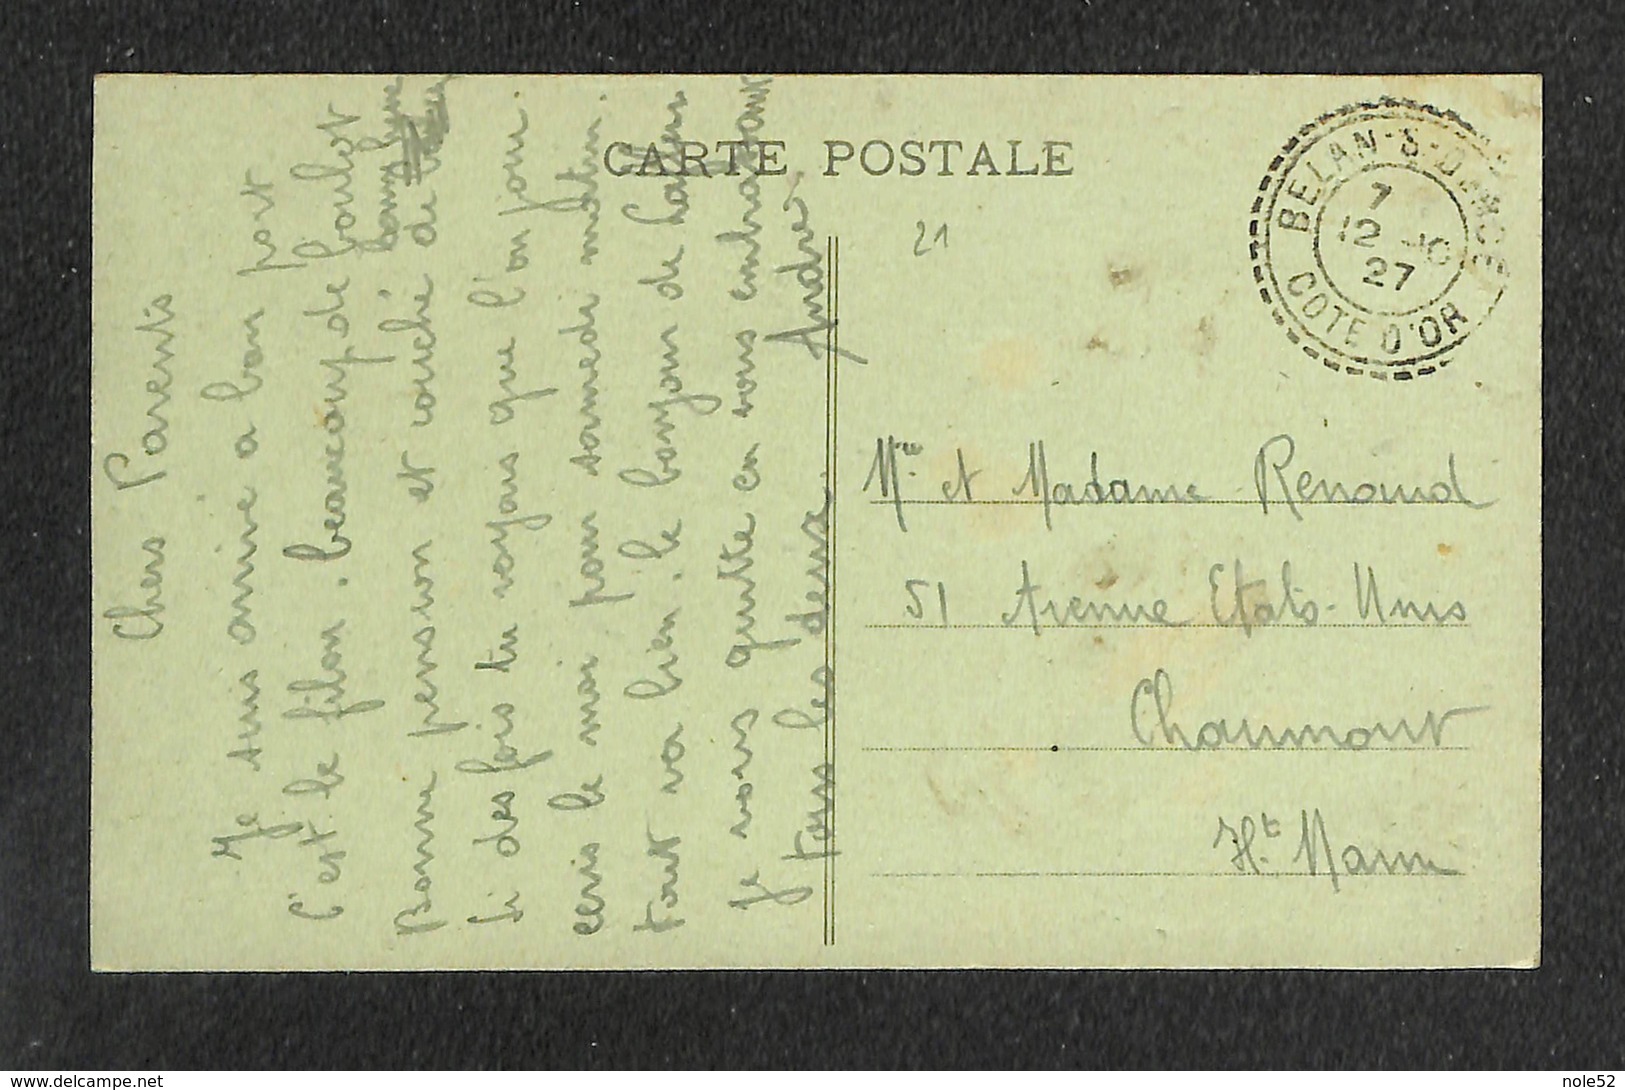 CARTE POSTALE
21
BELAN-S-OURCE
7
12 -10
27
COTE D'OR
Chers Parents
Je suis arrivé a bon port
C'est le filon. beaucoup de boulot
Bonne pension et couché
Si des fois tu voyais que l'on jou.
ecris le moi pour samedi matin.
tout va bien. le bonjour de
Je vous quitte en vous embrassant
tous les deux. André
Mr et Madame Renaud
51 Avenue Etats-Unis
Chaumont
Hte Marne
www.delcampe.net
nole52